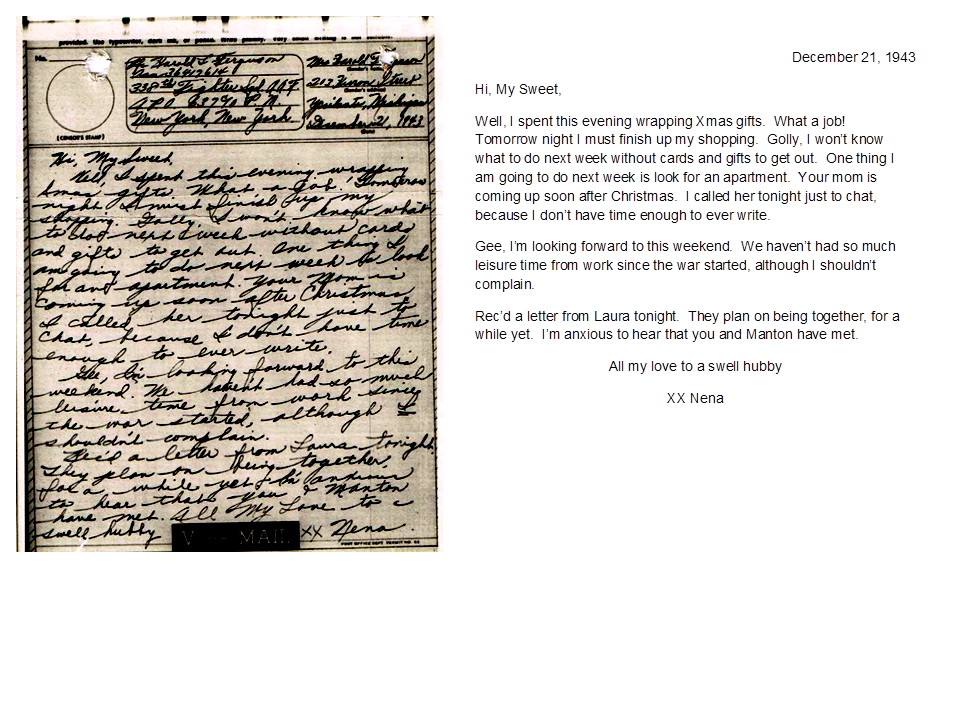 No.
(CENSOR'S STAMP)
338th Fighter Sqd. AAF
New York, New York
December 21, 1943
Hi, My Sweet,
Well, I spent this evening wrapping
Xmas gifts. What a job! Tomorrow
night I must finish up my
shopping. Golly, I won't know what
to do next week without cards
and gifts to get out. One thing I
am going to do next week is look
for an apartment. Your Mom is
coming up soon after Christmas.
I called her tonight just to
chat, because I don't have time
enough to ever write.
Gee, I'm looking forward to this
weekend. We haven't had so much
leisure time from work since
the war started, although I
shouldn't complain.
Rec'd a letter from Laura tonight.
They plan on being together,
for a while yet. I'm anxious
to hear that you & Manton
have met. All My Love to a
swell hubby
XX Nena.
V MAIL
December 21, 1943
Hi, My Sweet,
Well, I spent this evening wrapping Xmas gifts. What a job!
Tomorrow night I must finish up my shopping. Golly, I won't know
what to do next week without cards and gifts to get out. One thing I
am going to do next week is look for an apartment. Your mom is
coming up soon after Christmas. I called her tonight just to chat,
because I don't have time enough to ever write.
Gee, I'm looking forward to this weekend. We haven't had so much
leisure time from work since the war started, although I shouldn't
complain.
Rec'd a letter from Laura tonight. They plan on being together, for a
while yet. I'm anxious to hear that you and Manton have met.
All my love to a swell hubby
XX Nena